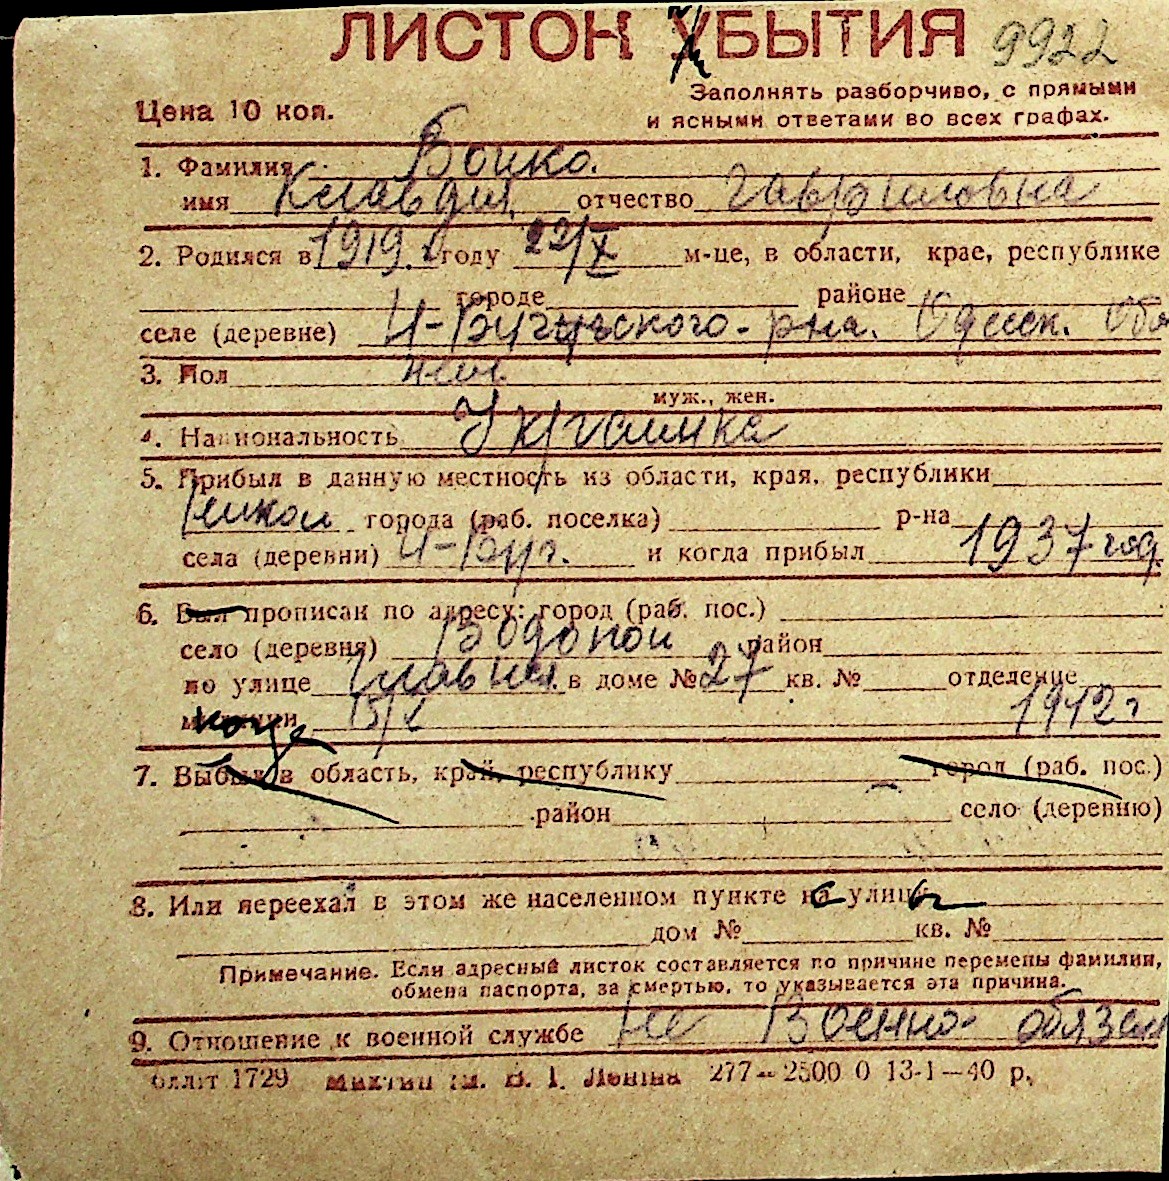 ЛИСТОК УБЫТИЯ 9922
Цена 10 коп. Заполнять разборчиво, с прямыми
и ясными ответами во всех графах.
1. Фамилия Бойко.
имя Клавдия, отчество Гавриловна
2. Родился в 1919 г. году 22/X м-це, в области, крае, республике
городе районе
селе (деревне) И-Бугского-рна. Одесск. Обл
3. Пол жен.
муж., жен.
4. Национальность Украинка
5. Прибыл в данную местность из области, края, республики
города (раб. поселка) р-на
села (деревни) И-Буг. и когда прибыл 1937 год.
6. Был прописан по адресу: город (раб. пос.)
село (деревня) Водопой район
по улице Главная в доме № 27 кв. № отделение
милиции когда 15/X 1942 г
7. Выбыл в область, край, республику город (раб. пос.)
район село (деревню)
8. Или переехал в этом же населенном пункте на с улицу ы
дом № кв. №
Примечание. Если адресный листок составляется по причине перемены фамилии,
обмена паспорта, за смертью, то указывается эта причина.
9. Отношение к военной службе Не Военно-обязан
1729 277—2500 0 13-1—40 р.